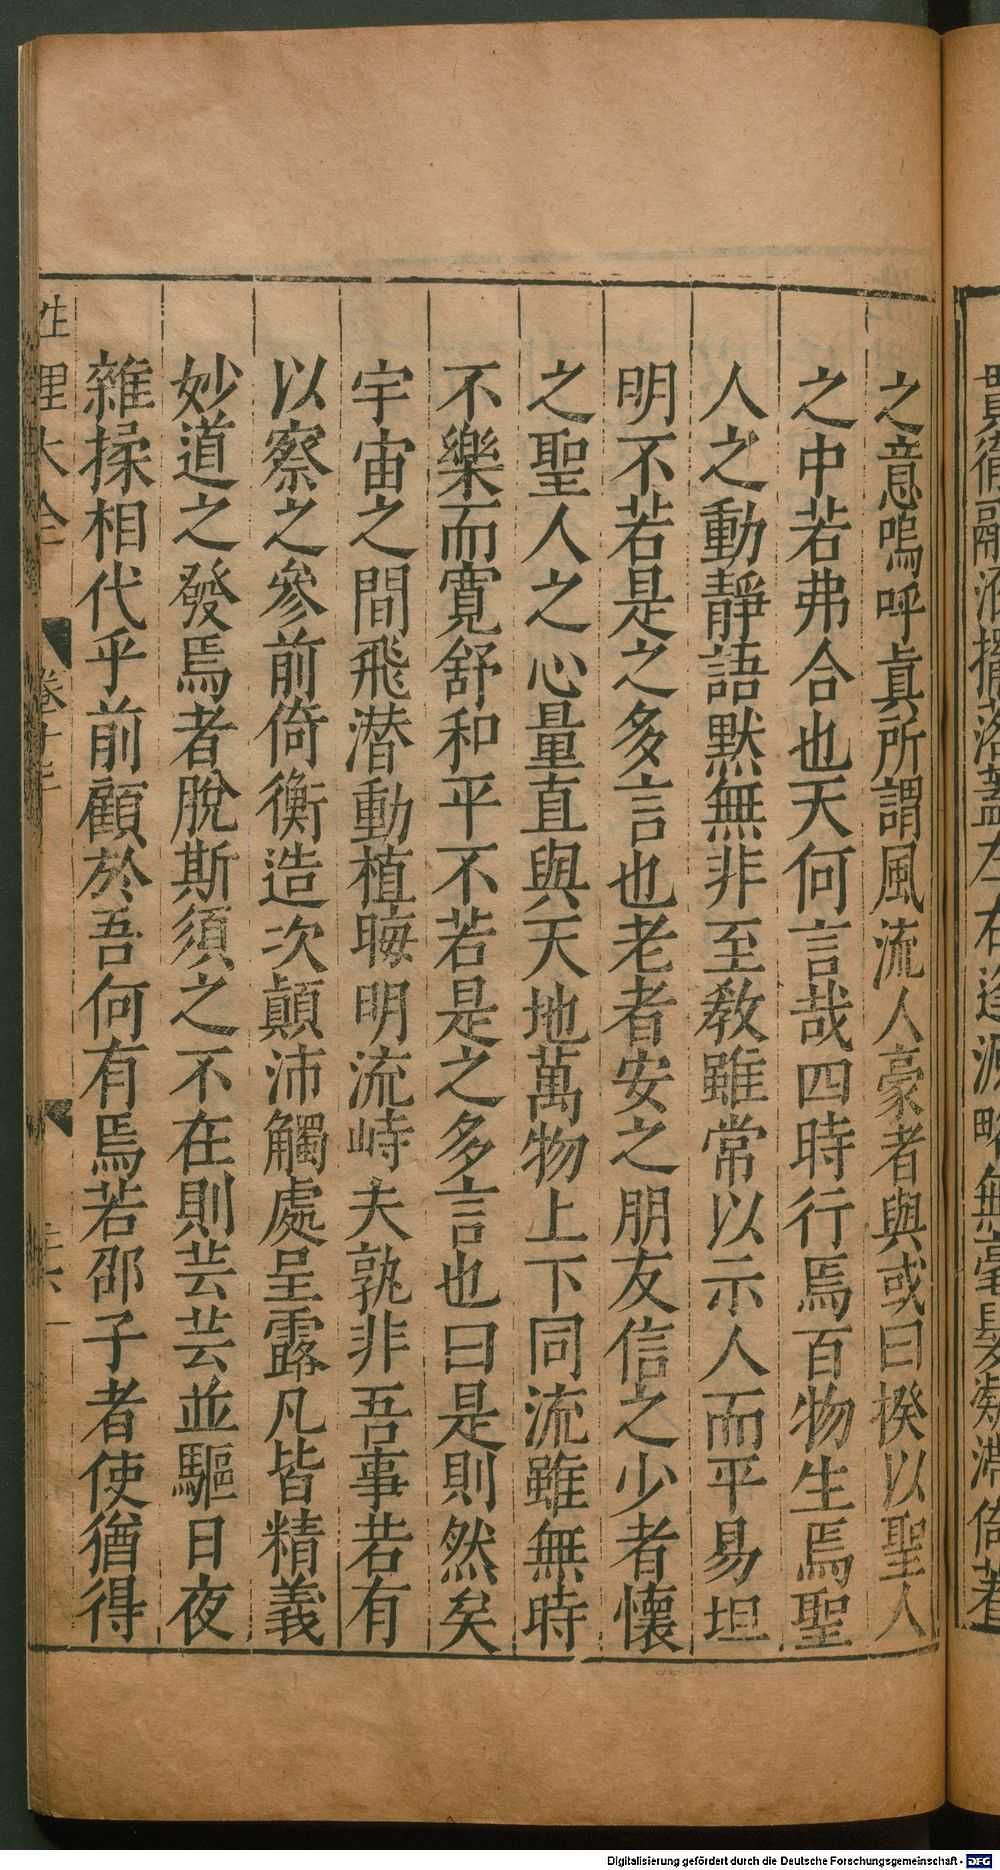 之意嗚呼眞所謂風流人豪者與或曰揆以聖人
之中若弗合也天何言哉四時行焉百物生焉聖
人之動靜語默無非至教雖常以示人而平易坦
明不若是之多言也老者安之朋友信之少者懷
之聖人之心量直與天地萬物上下同流雖無時
不樂而寛舒和平不若是之多言也曰是則然矣
宇宙之間飛潜動植晦明流峙夫孰非吾事若有
以察之參前倚衡造次顛沛觸處呈露凡皆精義
妙道之發焉者脫斯須之不在則芸芸並驅日夜
雜揉相代乎前顧於吾何有焉若邵子者使猶得
性理大全
卷十
Digitalisierung gefördert durch die Deutsche Forschungsgemeinschaft - DFG